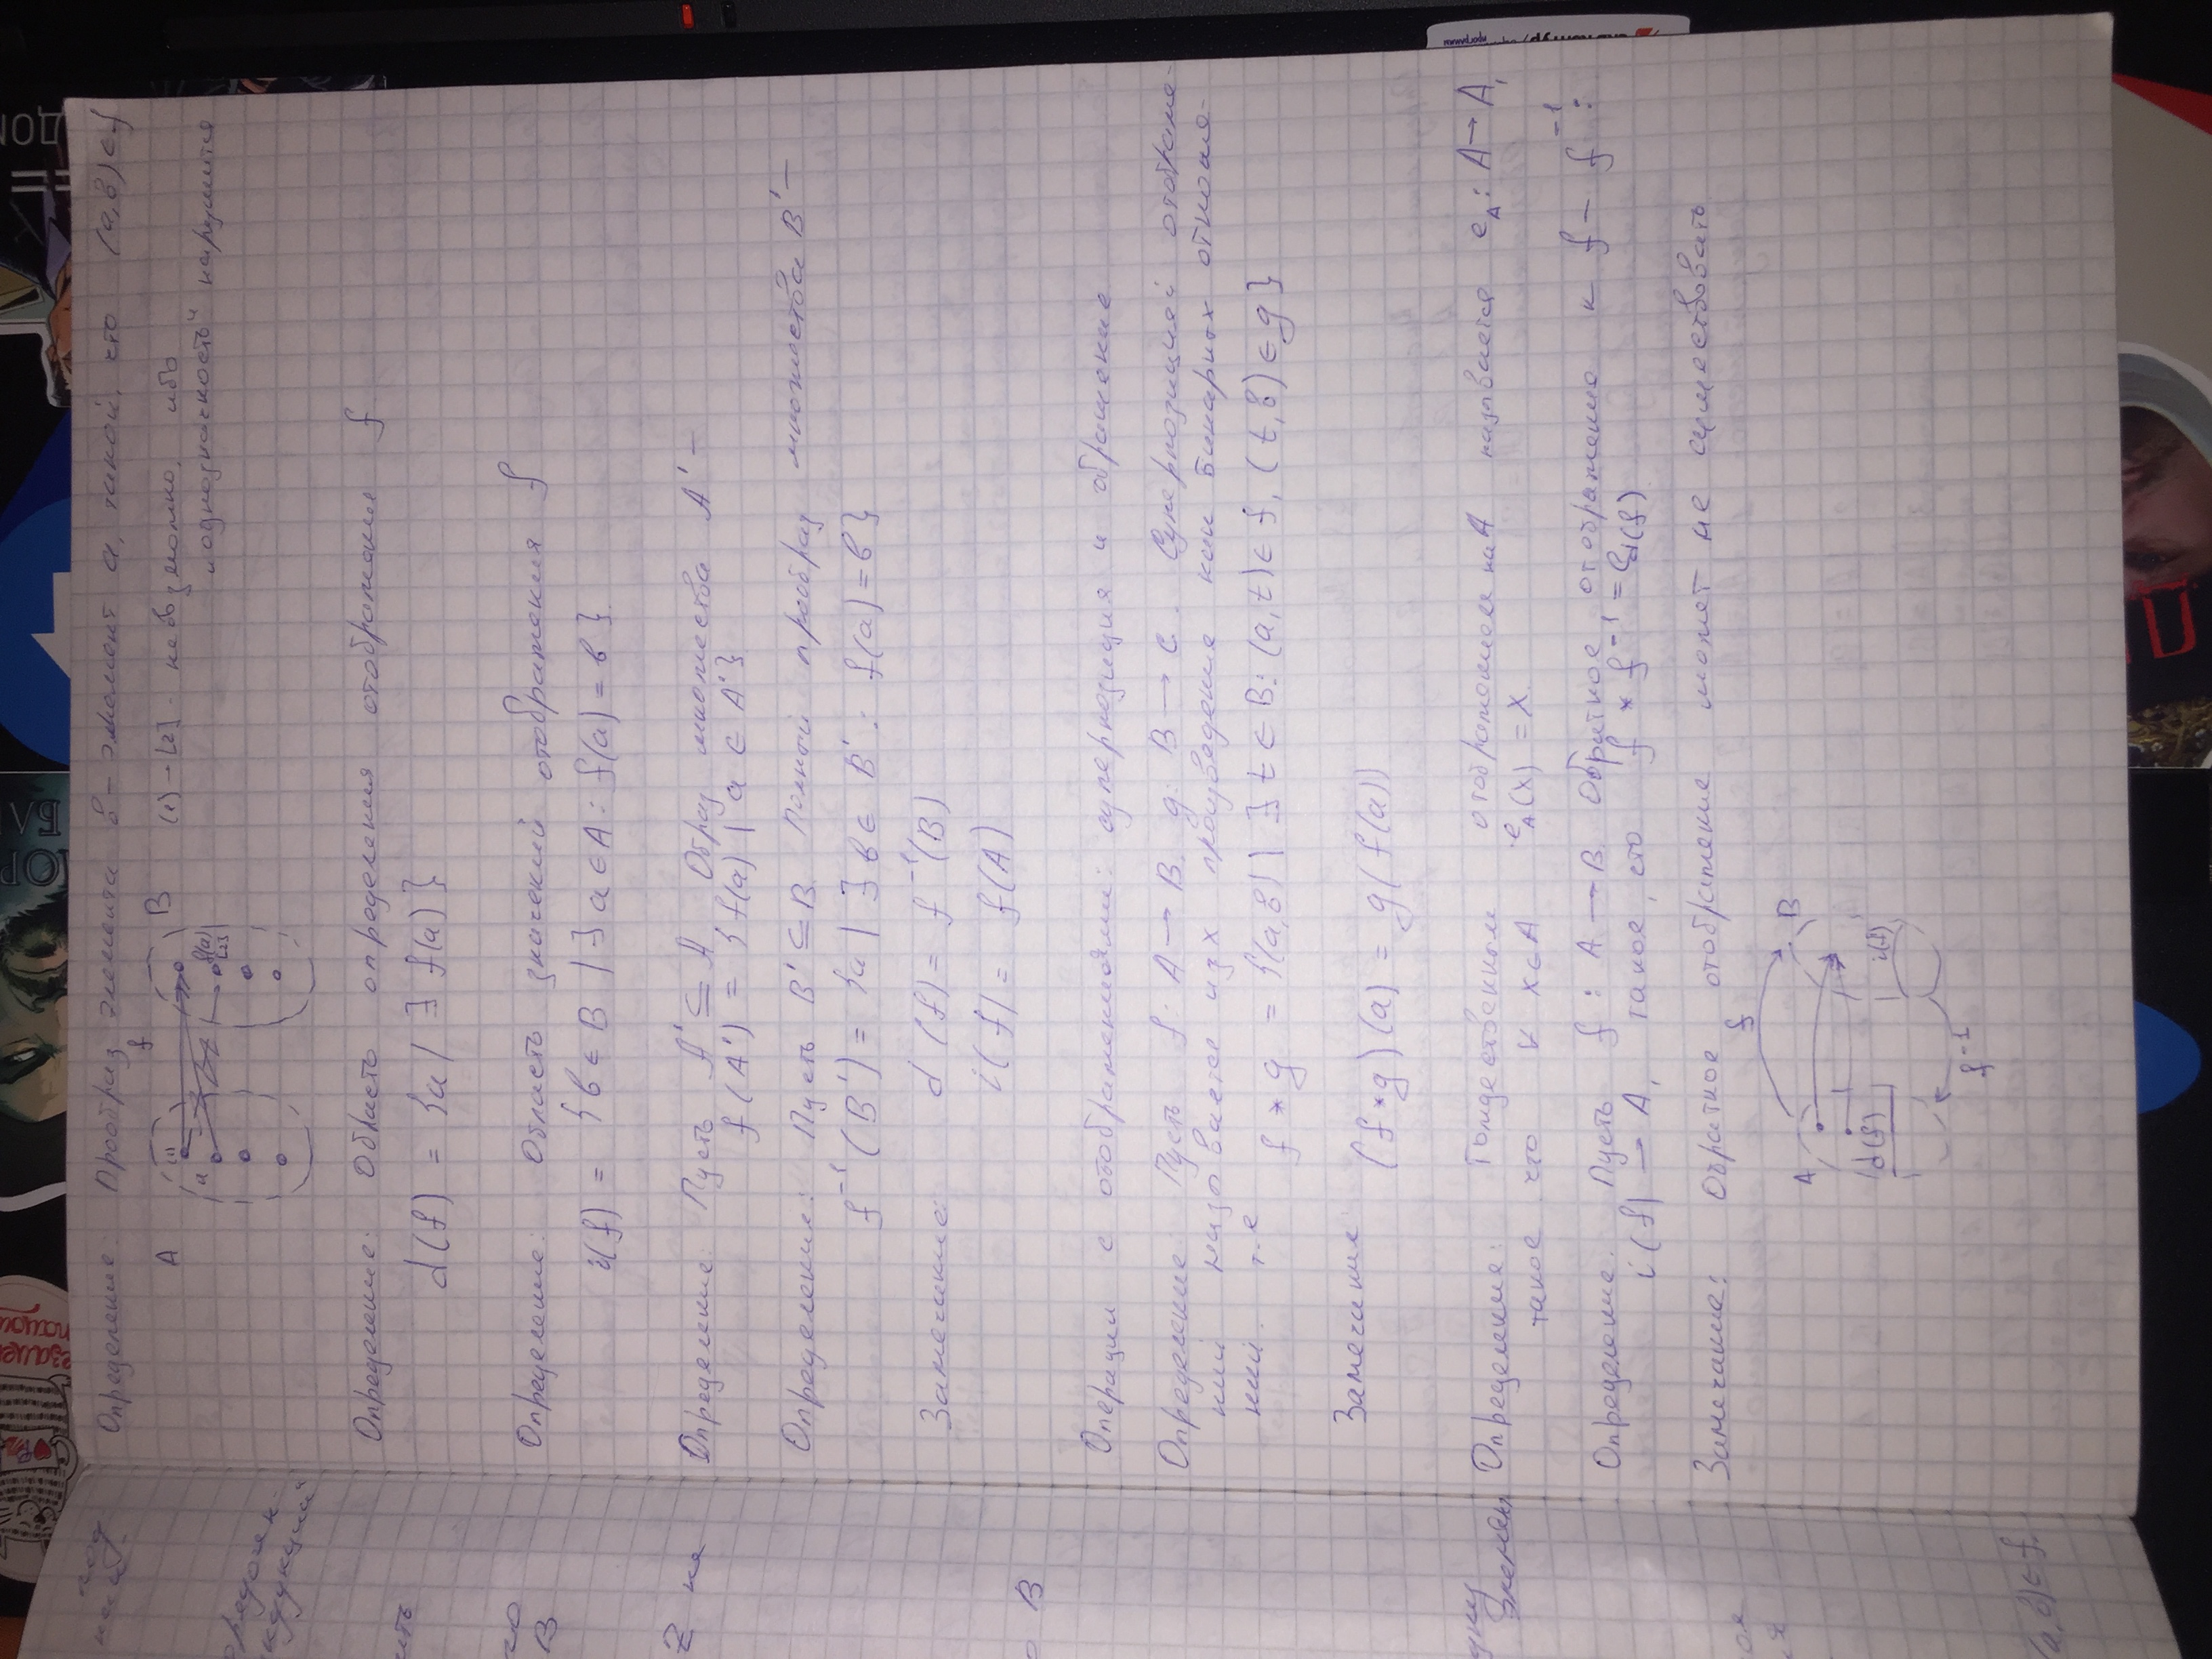 Определение: Прообраз элемента в – элемент а, такой, что (a, в) ∈ f
A f B (1) – [2] - невозможно, ибо
„однозначность" нарушится
(1)
a f(a)
[2]
Определение: Область определения отображения f
d(f) = {a | ∃ f(a)}
Определение: Область значений отображения f
i(f) = {в ∈ B | ∃ a ∈ A : f(a) = в}.
Определение: Пусть A' ⊆ A. Образ множества A' –
f(A') = {f(a) | a ∈ A'}
Определение: Пусть B' ⊆ B. Полный прообраз множества B' –
f⁻¹(B') = {a | ∃ в ∈ B' : f(a) = в}
Замечание: d(f) = f⁻¹(B)
i(f) = f(A)
Операции с отображениями: суперпозиция и обращение
Определение: Пусть f: A → B, g: B → C. Суперпозицией отображе-
ний называется их произведение как бинарных отноше-
ний. т.е
f * g = {(a, в) | ∃ t ∈ B: (a, t) ∈ f, (t, в) ∈ g}
Замечание:
(f * g)(a) = g(f(a))
Определение: Тождественным отображением на A называется e_A : A → A,
такое что ∀ x ∈ A e_A(x) = x.
Определение. Пусть f : A → B. Обратное отображение к f – f⁻¹ :
i(f) → A, такое, что f * f⁻¹ = e_d(f)
Замечание: Обратное отображение может не существовать
f
A B
d(f) i(f)
f⁻¹
под
ить
B
Z не
B
элемен
(a, в) ∈ f.